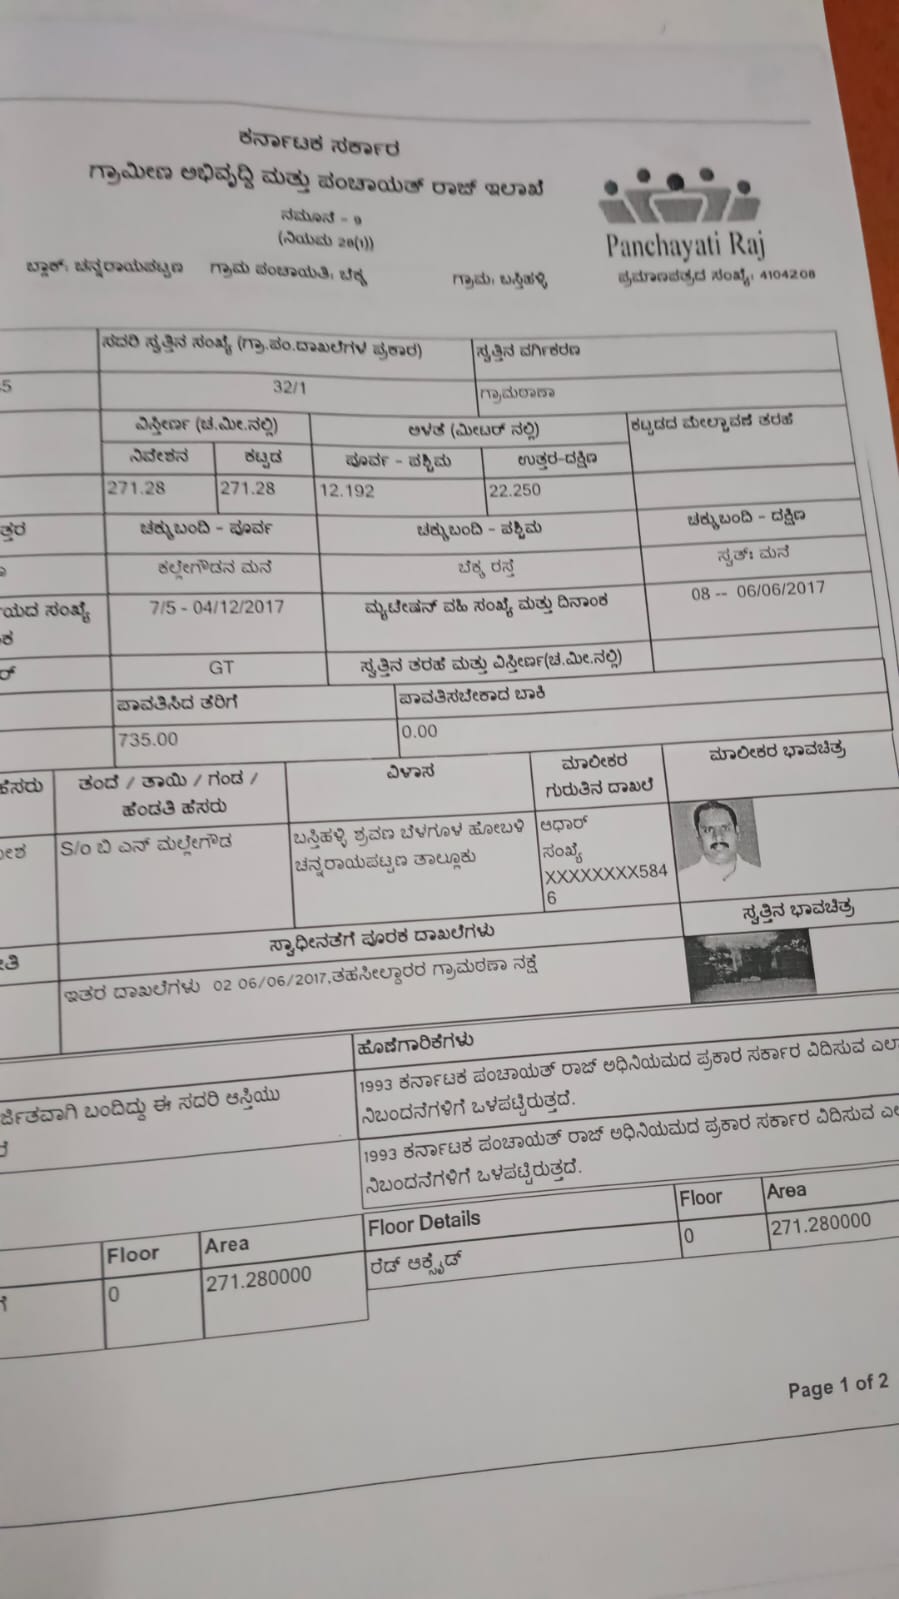 ಕರ್ನಾಟಕ ಸರ್ಕಾರ
ಗ್ರಾಮೀಣ ಅಭಿವೃದ್ದಿ ಮತ್ತು ಪಂಚಾಯತ್ ರಾಜ್ ಇಲಾಖೆ
ನಮೂನೆ - ೨
(ನಿಯಮ 28(1))
Panchayati Raj
ಬ್ಲಾಕ್: ಚನ್ನರಾಯಪಟ್ಟಣ ಗ್ರಾಮ ಪಂಚಾಯತಿ: ಬೆಕ್ಕ ಗ್ರಾಮ: ಬಸ್ತಿಹಳ್ಳಿ ಪ್ರಮಾಣಪತ್ರದ ಸಂಖ್ಯೆ: 4104208
ಸದರಿ ಸ್ವತ್ತಿನ ಸಂಖ್ಯೆ (ಗ್ರಾ.ಪಂ.ದಾಖಲೆಗಳ ಪ್ರಕಾರ) ಸ್ವತ್ತಿನ ವರ್ಗಿಕರಣ
5 32/1 ಗ್ರಾಮಠಾಣಾ
ವಿಸ್ತೀರ್ಣ (ಚ.ಮೀ.ನಲ್ಲಿ) ಅಳತೆ (ಮೀಟರ್ ನಲ್ಲಿ) ಕಟ್ಟಡದ ಮೇಲ್ಚಾವಣಿ ತರಹೆ
ನಿವೇಶನ ಕಟ್ಟಡ ಪೂರ್ವ - ಪಶ್ಚಿಮ ಉತ್ತರ-ದಕ್ಷಿಣ
271.28 271.28 12.192 22.250
ತ್ತರ ಚಕ್ಕುಬಂದಿ - ಪೂರ್ವ ಚಕ್ಕುಬಂದಿ - ಪಶ್ಚಿಮ ಚಕ್ಕುಬಂದಿ - ದಕ್ಷಿಣ
ಕಲ್ಲೇಗೌಡನ ಮನೆ ಬೆಕ್ಕ ರಸ್ತೆ ಸ್ವತ್: ಮನೆ
ಯದ ಸಂಖ್ಯೆ 7/5 - 04/12/2017 ಮ್ಯುಟೇಷನ್ ವಹಿ ಸಂಖ್ಯೆ ಮತ್ತು ದಿನಾಂಕ 08 -- 06/06/2017
ಕ
ರ್ GT ಸ್ವತ್ತಿನ ತರಹೆ ಮತ್ತು ವಿಸ್ತೀರ್ಣ(ಚ.ಮೀ.ನಲ್ಲಿ)
ಪಾವತಿಸಿದ ತೆರಿಗೆ ಪಾವತಿಸಬೇಕಾದ ಬಾಕಿ
735.00 0.00
ಹೆಸರು ತಂದೆ / ತಾಯಿ / ಗಂಡ / ವಿಳಾಸ ಮಾಲೀಕರ ಮಾಲೀಕರ ಭಾವಚಿತ್ರ
ಹೆಂಡತಿ ಹೆಸರು ಗುರುತಿನ ದಾಖಲೆ
ೀಶ S/o ಬಿ ಎನ್ ಮಲ್ಲೇಗೌಡ ಬಸ್ತಿಹಳ್ಳಿ ಶ್ರವಣ ಬೆಳಗೂಳ ಹೋಬಳಿ ಆಧಾರ್
ಚನ್ನರಾಯಪಟ್ಟಣ ತಾಲ್ಲೂಕು ಸಂಖ್ಯೆ
XXXXXXXX584
6
ತಿ ಸ್ವಾಧೀನತೆಗೆ ಪೂರಕ ದಾಖಲೆಗಳು ಸ್ವತ್ತಿನ ಭಾವಚಿತ್ರ
ಇತರ ದಾಖಲೆಗಳು 02 06/06/2017,ತಹಸೀಲ್ದಾರರ ಗ್ರಾಮಠಣಾ ನಕ್ಷೆ
ಹೊಣೆಗಾರಿಕೆಗಳು
ರ್ಜಿತವಾಗಿ ಬಂದಿದ್ದು ಈ ಸದರಿ ಆಸ್ತಿಯು 1993 ಕರ್ನಾಟಕ ಪಂಚಾಯತ್ ರಾಜ್ ಅಧಿನಿಯಮದ ಪ್ರಕಾರ ಸರ್ಕಾರ ವಿದಿಸುವ ಎಲಾ
ನಿಬಂದನೆಗಳಿಗೆ ಒಳಪಟ್ಟಿರುತ್ತದೆ.
1993 ಕರ್ನಾಟಕ ಪಂಚಾಯತ್ ರಾಜ್ ಅಧಿನಿಯಮದ ಪ್ರಕಾರ ಸರ್ಕಾರ ವಿದಿಸುವ ಎಲ
ನಿಬಂದನೆಗಳಿಗೆ ಒಳಪಟ್ಟಿರುತ್ತದೆ.
Floor Area Floor Details Floor Area
ಗೆ 0 271.280000 ರೆಡ್ ಆಕ್ಸೈಡ್ 0 271.280000
Page 1 of 2